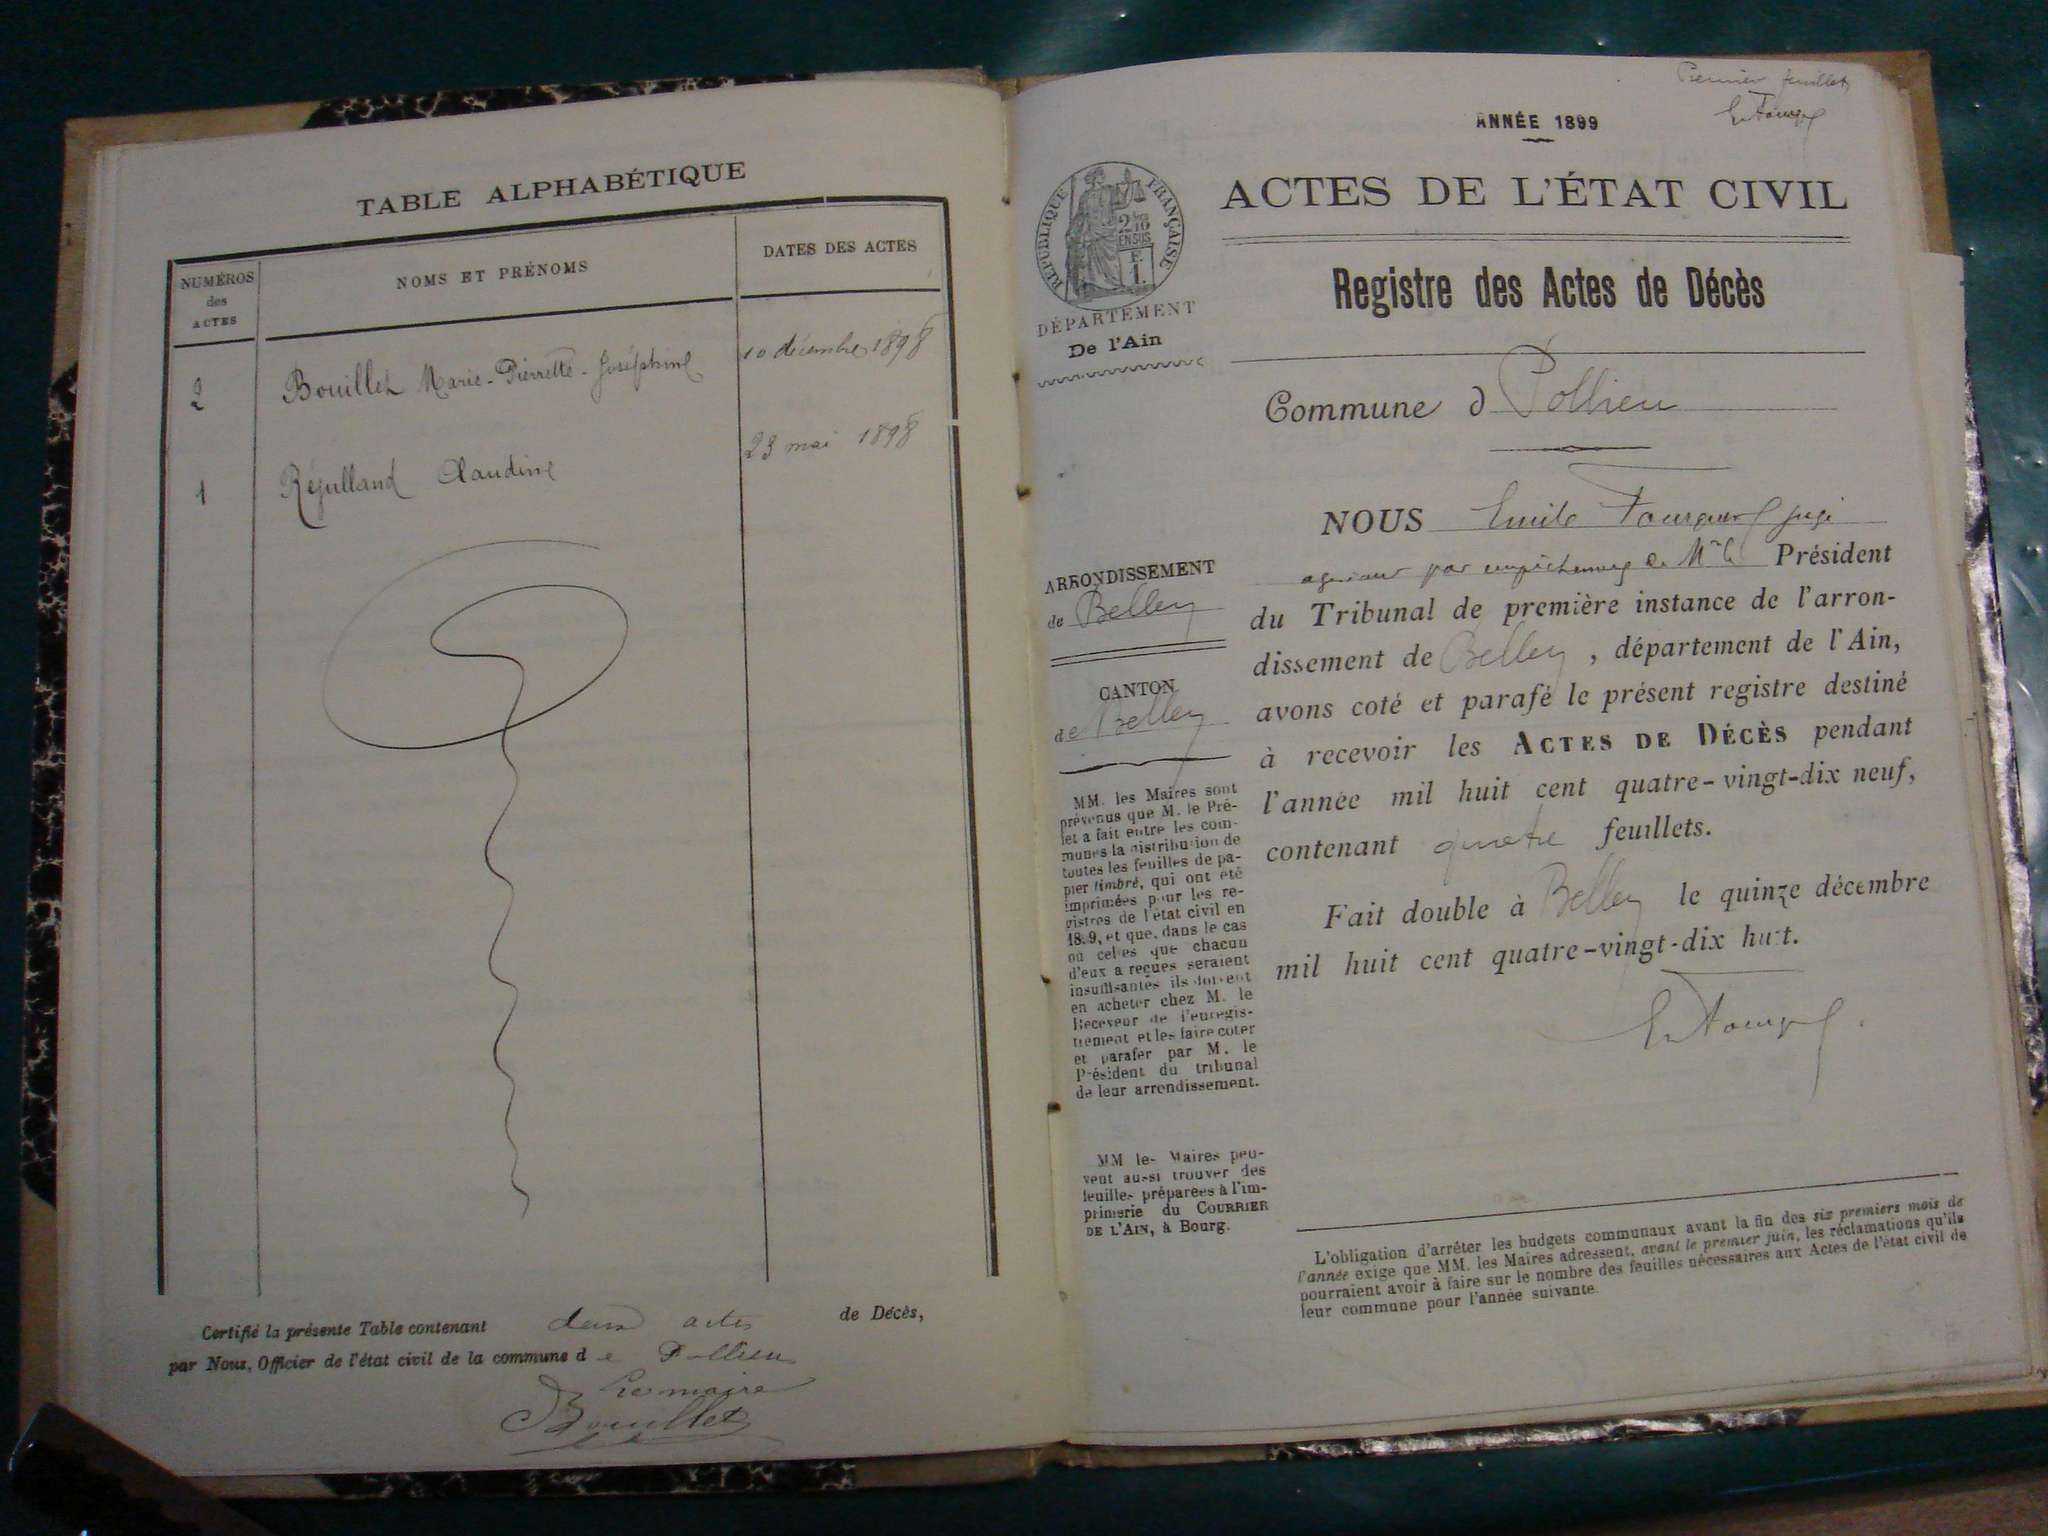 TABLE ALPHABÉTIQUE
NUMÉROS
des
ACTES
NOMS ET PRÉNOMS
DATES DES ACTES
2 Bouillet Marie-Pierrette-Joséphine 10 décembre 1898
1 Claudine 23 mai 1898
Certifié la présente Table contenant deux actes de Décès,
par Nous, Officier de l'état civil de la commune de Pollieu
Le maire
Bouillet
Premier feuillet
ANNÉE 1899
RÉPUBLIQUE FRANÇAISE
2/10
EN SUS
F.
1.
ACTES DE L'ÉTAT CIVIL
DÉPARTEMENT
De l'Ain
Registre des Actes de Décès
Commune d Pollieu
ARRONDISSEMENT
de Belley
CANTON
de Belley
MM. les Maires sont
prévenus que M. le Pré-
fet a fait entre les com-
munes la distribution de
toutes les feuilles de pa-
pier timbré, qui ont été
imprimées pour les re-
gistres de l'état civil en
1899, et que, dans le cas
où celles que chacun
d'eux a reçues seraient
insuffisantes ils doivent
en acheter chez M. le
Receveur de l'enregis-
trement et les faire coter
et parafer par M. le
Président du tribunal
de leur arrondissement.
MM les Maires peu-
vent aussi trouver des
feuilles préparées à l'im-
primerie du COURRIER
DE L'AIN, à Bourg.
NOUS Emile juge
par empêchement de Mr le Président
du Tribunal de première instance de l'arron-
dissement de Belley, département de l'Ain,
avons coté et parafé le présent registre destiné
à recevoir les ACTES DE DÉCÈS pendant
l'année mil huit cent quatre-vingt-dix neuf,
contenant quatre feuillets.
Fait double à Belley le quinze décembre
mil huit cent quatre-vingt-dix huit.
L'obligation d'arrêter les budgets communaux avant la fin des six premiers mois de
l'année exige que MM. les Maires adressent, avant le premier juin, les réclamations qu'ils
pourraient avoir à faire sur le nombre des feuilles nécessaires aux Actes de l'état civil de
leur commune pour l'année suivante.